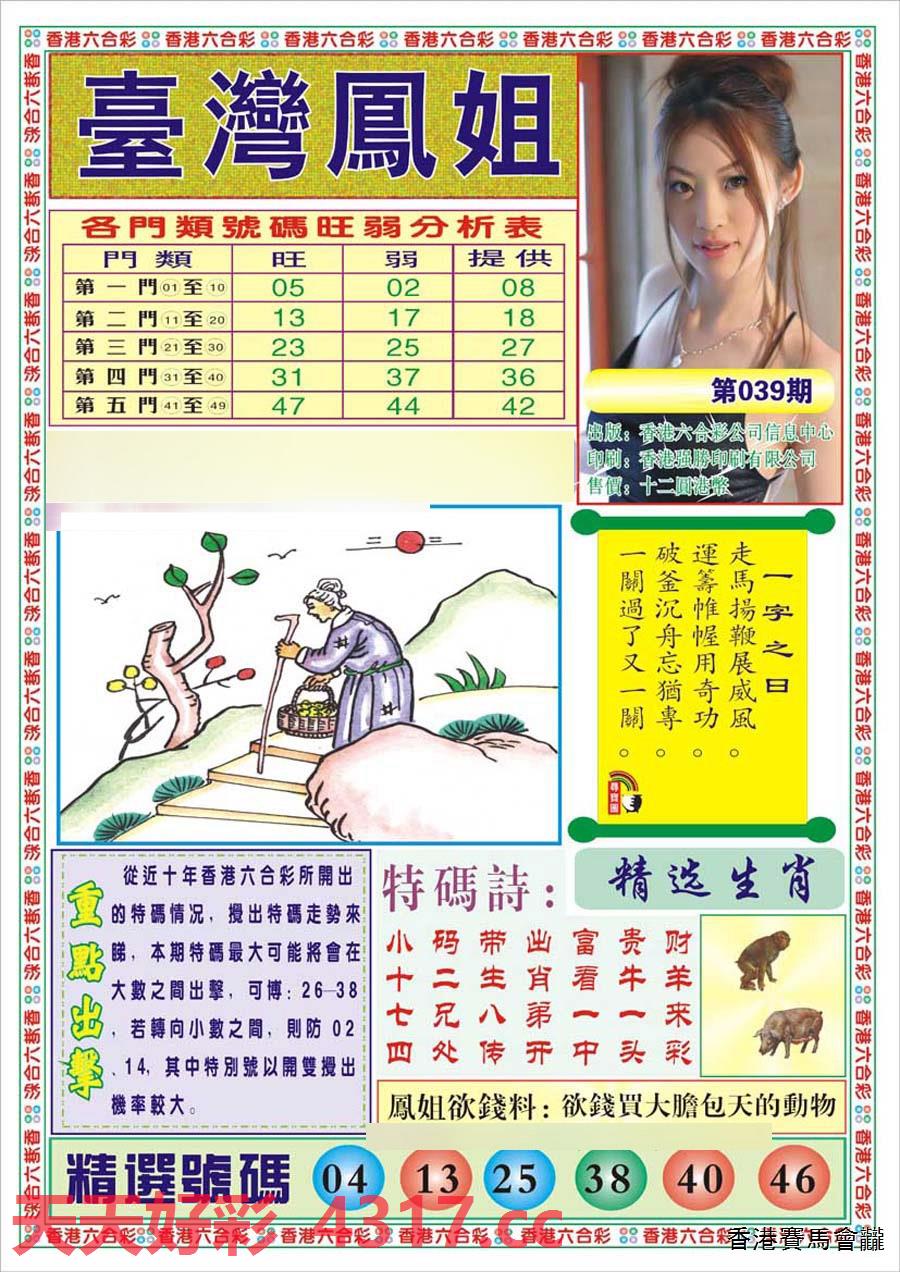 香港六合彩 香港六合彩 香港六合彩 香港六合彩 香港六合彩 香港六合彩 香港六合彩
臺灣鳳姐
各門類號碼旺弱分析表
門類 旺 弱 提供
第一門01至10 05 02 08
第二門11至20 13 17 18
第三門21至30 23 25 27
第四門31至40 31 37 36
第五門41至49 47 44 42
第039期
出版：香港六合彩公司信息中心
印刷：香港强勝印刷有限公司
售價：十二圓港幣
一字之曰
走馬揚鞭展威風。
運籌帷幄用奇功。
破釜沉舟忘猶專。
一關過了又一關。
尋寶圖
重點出擊
從近十年香港六合彩所開出
的特碼情况，攪出特碼走勢來
睇，本期特碼最大可能將會在
大數之間出擊，可博：26—38
，若轉向小數之間，則防 02
、14，其中特別號以開雙攪出
機率較大。
特碼詩：
小码带出富贵财
十二生肖看牛羊
七兄八弟一一来
四处传开中头彩
精选生肖
鳳姐欲錢料：欲錢買大膽包天的動物
精選號碼 04 13 25 38 40 46
天天好彩 4317.cc
香港六合彩 香港六合彩 香港六合彩 香港六合彩 香港六合彩
香港賽馬會